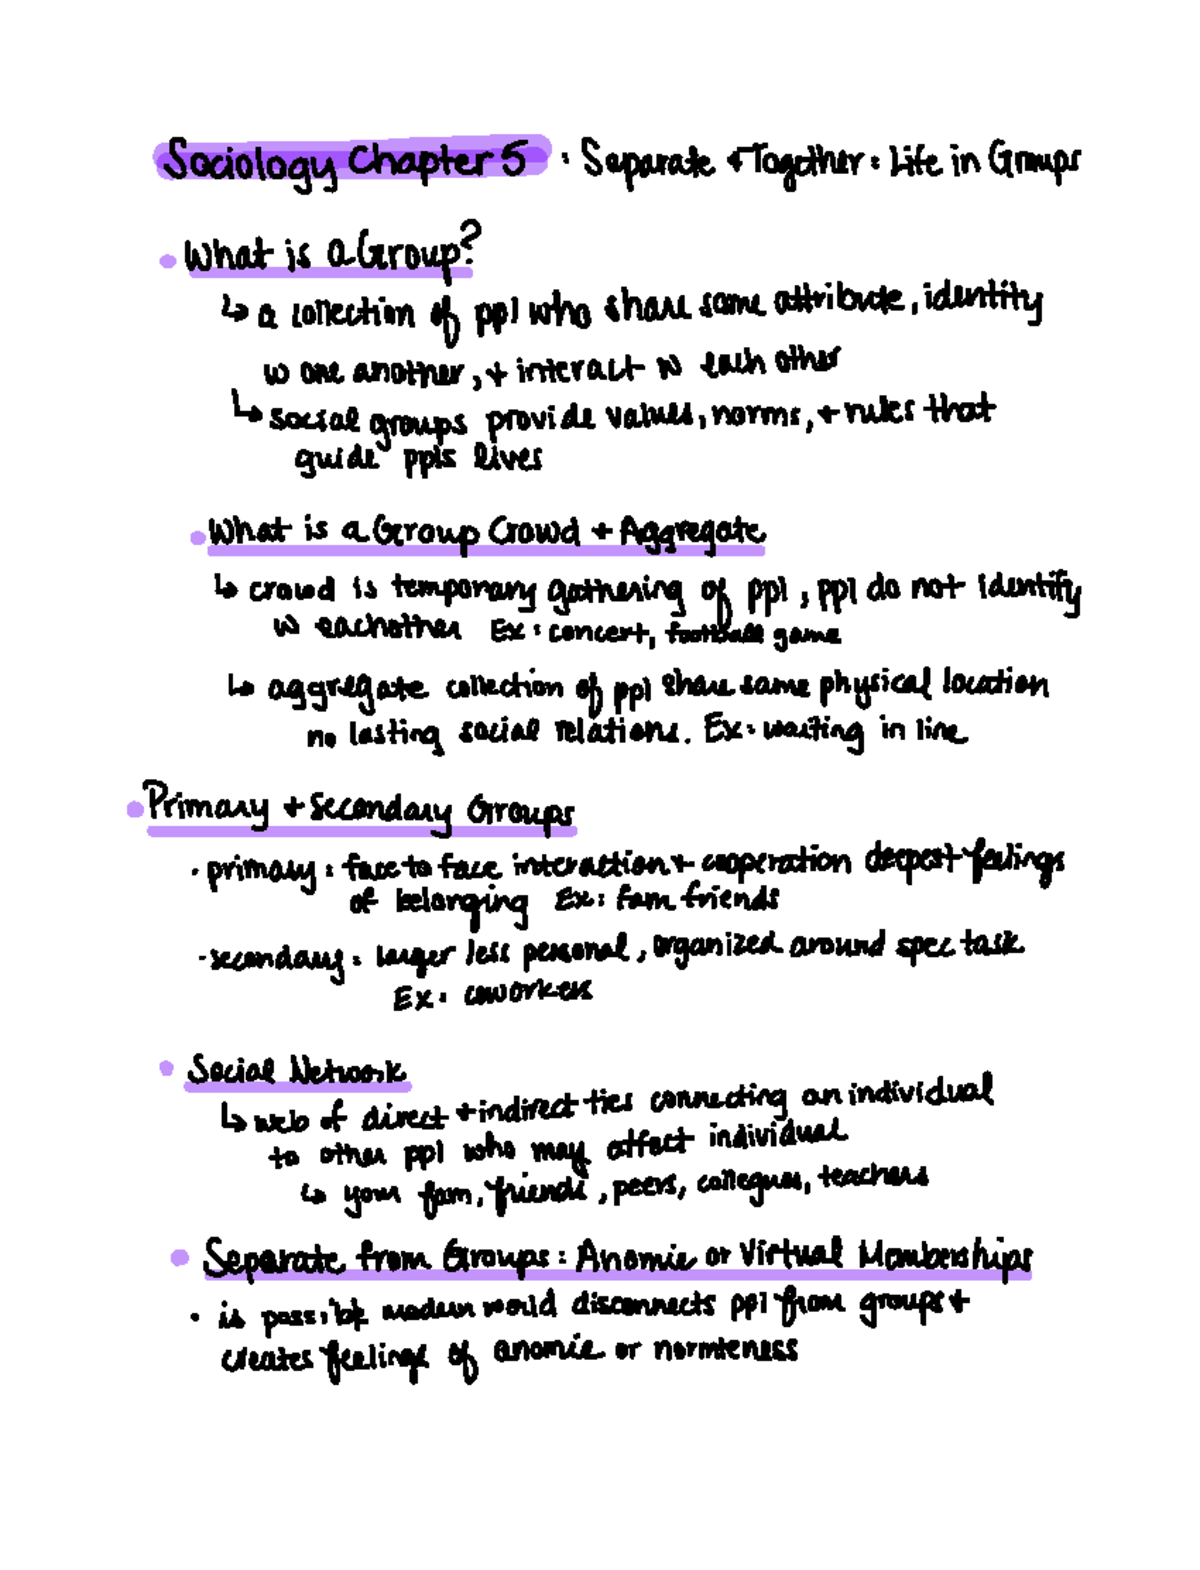 Sociology Chapter 5 : Separate + Together: Life in Groups
What is a Group?
↳ a collection of ppl who share same attribute, identity
w one another, + interact w each other
↳ social groups provide values, norms, + rules that
guide ppls lives
What is a Group Crowd + Aggregate
↳ crowd is temporary gathering of ppl, ppl do not identify
w eachother Ex: concert, football game
↳ aggregate collection of ppl share same physical location
no lasting social relations. Ex: waiting in line
Primary + Secondary Groups
• primary: face to face interaction + cooperation deepest feelings
of belonging Ex: fam friends
• secondary: larger less personal, organized around spec task
Ex: coworkers
Social Network
↳ web of direct + indirect ties connecting an individual
to other ppl who may affect individual
↳ your fam, friends, peers, collegues, teachers
Separate from Groups: Anomie or Virtual Memberships
• is possible modern world disconnects ppl from groups +
creates feelings of anomie or normleness